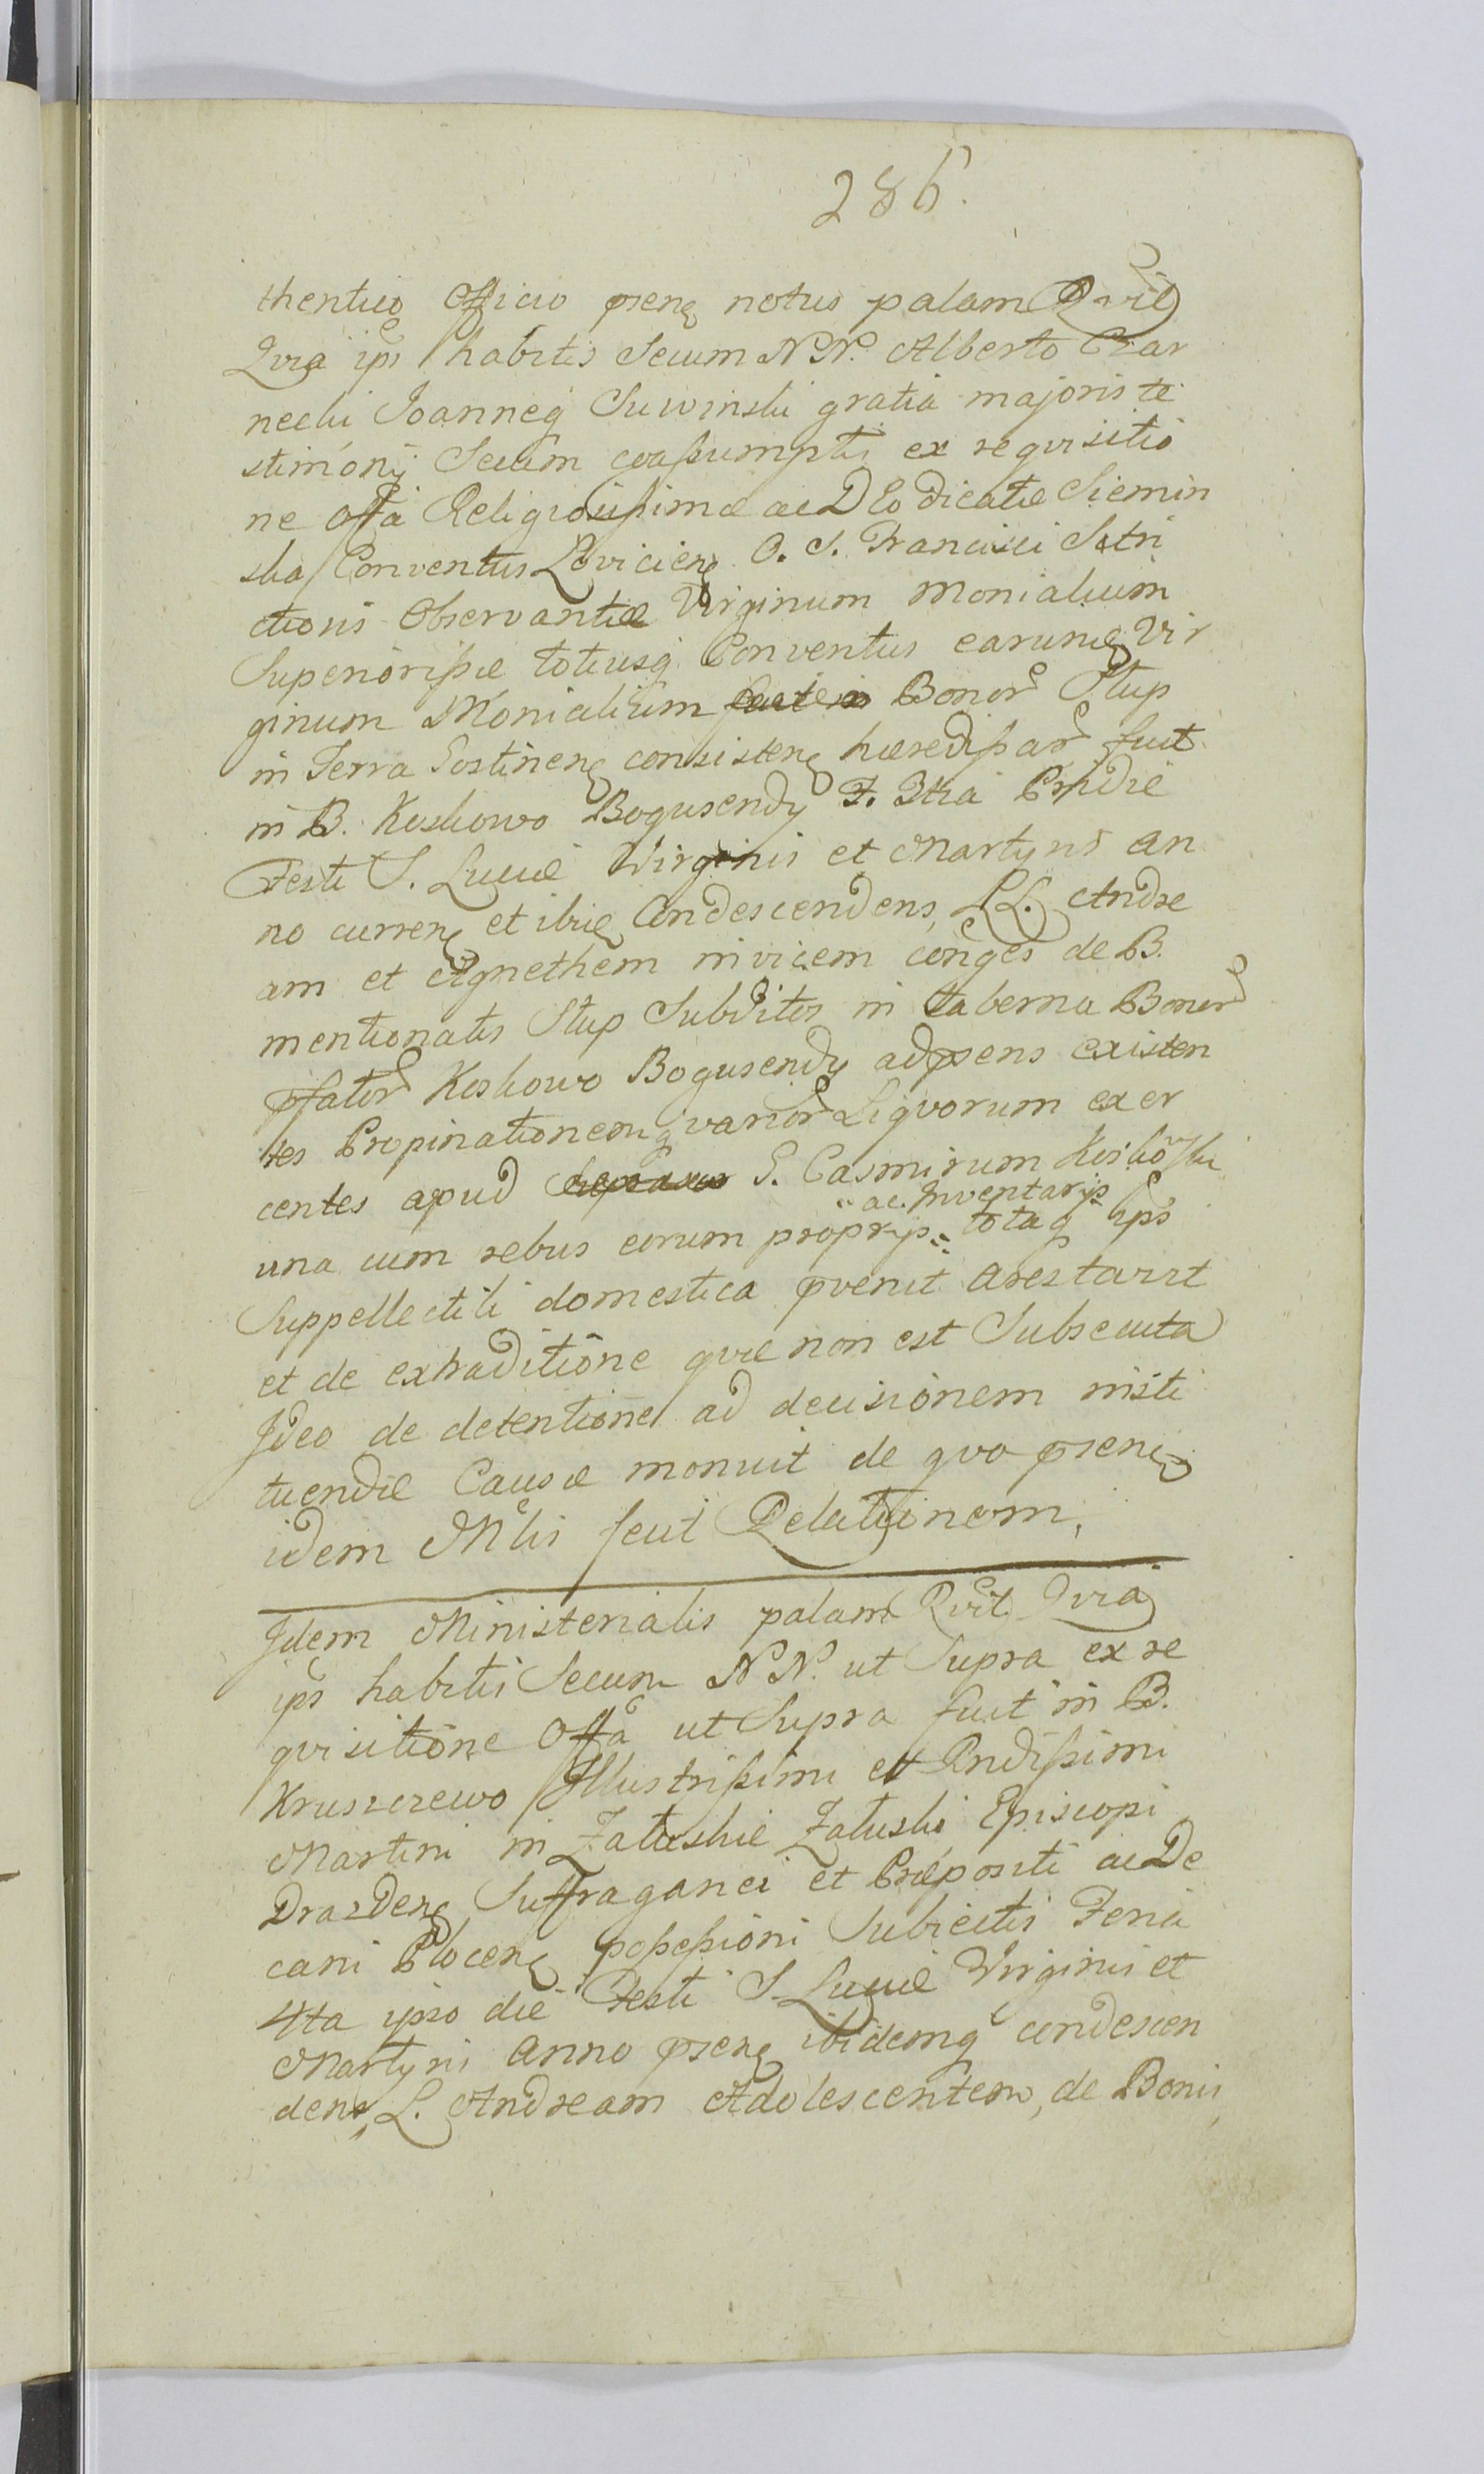 286.
thentico Officio psen notus palam Rvit
Qvia ips habitis Secum NN. Alberto Czar
necki Joanneq Suwinski gratia majoris te
stimonij Secum coassumptis ex reqvisitio
ne Offa Religiosissimæ ac D Eo dicatæ Siemin
ska Conventus Lovicien O. S. Francisci Sctri
ctioris Observantiæ Virginum Monialium
Superiorissæ totiusq Conventus earund Vir
ginum Monialium Bonor Słup
in Terra Gostinen consisten hæredissar fuit
in B. Koskowo Bogusendy F. 3tia Pridie
Festi S. Luciæ Virginis et Martyris An
no curren et ibid Condescendens, LL. Andre
am et Agnethem invicem conges de B.
mentionatis Słup Subditos in taberna Bonor
pfator Koskowo Bogusendy adpsens existen
tes Propinationemq varior Liqvorum exer
centes apud G. Casimirum Koskoski
una cum rebus eorum proprijs ac Inventarijs totaq ips
Suppellectili domestica pvenit arestavit
et de extraditione qvæ non est Subsecuta
Ideo de detentione ad decisionem insti
tuendæ Causæ monuit de qvo psen
idem Mlis fecit Relationem.
Idem Ministerialis palam Rvit Qvia
ips habitis Secum NN. ut Supra ex re
qvisitione Offa ut Supra fuit in B.
Kruszczewo Illustrissimi et Rndissimi
Martini in Załuskie Załuski Episcopi
Drazden Suffraganei et Præpositi ac De
cani Plocen possessioni Subiectis Feria
4ta ipso die Festi S. Luciæ Virginis et
Martyris Anno psen ibidemq condescen
dens, L. Andream Adolescentem, de Bonis